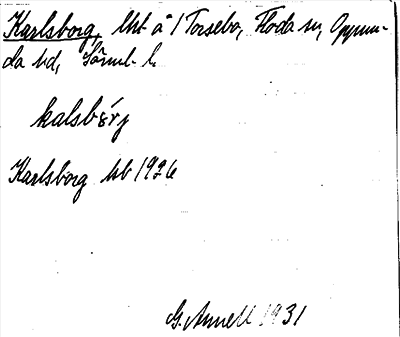 Karlsborg, lht å 1 Torsebo, Floda sn, Oppun-
da hd, Sörml. l.
kalsbórj
Karlsborg kb 1926
G. Annell 1931